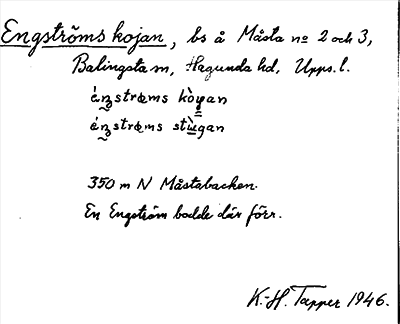 Engströms kojan, bs å Måsta no 2 och 3,
Balingsta sn, Hagunda hd, Upps. l.
éŋstrœms kòyan
éŋstrœms stùgan
350 m N Måstabacken.
En Engström bodde där förr.
K.-H. Tapper 1946.